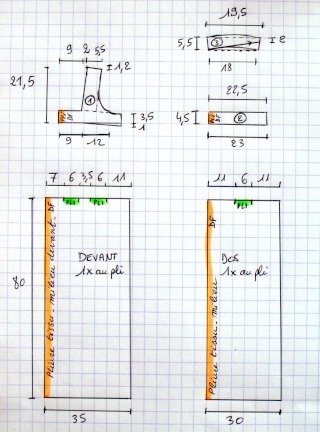 19,5
5,5
3
2
18
9 2 3,5
1,2
21,5
1
3,5
1
DF
9 12
22,5
4,5
DF
2
23
7 6 3,5 6 11
PLI
PLI
DF
Pliure tissu - milieu devant -
DEVANT
1x au pli
80
35
11 6 11
PLI
DF
Pliure tissu - milieu
DOS
1x au pli
30